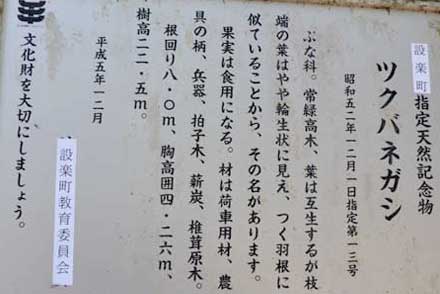 設楽町指定天然記念物
ツクバネガシ
昭和五二年一二月一日指定第一三号
ぶな科。常緑高木、葉は互生するが枝
端の葉はやや輪生状に見え、つく羽根に
似ていることから、その名があります。
果実は食用になる。材は荷車用材、農
具の柄、兵器、拍子木、薪炭、椎茸原木。
根回り八・〇m、胸高囲四・二六m、
樹高二二・五m。
平成五年一二月
設楽町教育委員会
文化財を大切にしましょう。